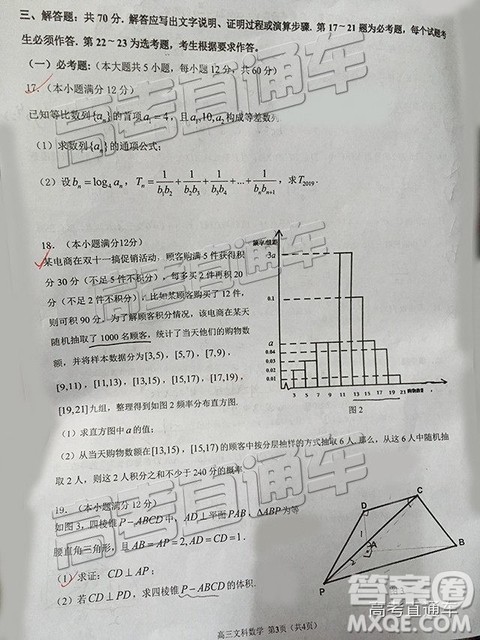 三、解答题：共 70 分. 解答应写出文字说明、证明过程或演算步骤. 第 17～21 题为必考题，每个试题考
生必须作答. 第 22～23 为选考题，考生根据要求作答.
（一）必考题：(本大题共 5 小题，每小题 12 分，共 60 分)
17.（本小题满分 12 分）
已知等比数列{aₙ}的首项 a₁ = 4，且 a₁,10,a₃ 构成等差数
（1）求数列{aₙ}的通项公式；
（2）设 bₙ = log₄ aₙ，Tₙ = 1/(b₁b₂) + 1/(b₂b₃) + ... + 1/(bₙbₙ₊₁)，求 T₂₀₁₉.
18.（本小题满分12分）
某电商在双十一搞促销活动，顾客购满 5 件获得积
分 30 分（不足 5 件不积分），每多买 2 件再积 20
分（不足 2 件不积分），比如某顾客购买了 12 件，
则可积 90 分. 为了解顾客积分情况，该电商在某天
随机抽取了 1000 名顾客，统计了当天他们的购物数
额，并将样本数据分为[3,5)，[5,7)，[7,9)，
[9,11)，[11,13)，[13,15)，[15,17)，[17,19)，
[19,21]九组，整理得到如图 2 频率分布直方图.
3a
0.1
a
0.04
0.03
0.02
0.01
3 5 7 9 11 13 15 17 19 21
图 2
（1）求直方图中 a 的值；
（2）从当天购物数额在[13,15)，[15,17)的顾客中按分层抽样的方式抽取 6 人. 那么，从这 6 人中随机抽
取 2 人，则这 2 人积分之和不少于 240 分的概率
19.（本小题满分 12 分）
如图 3，四棱锥 P－ABCD 中，AD⊥平面PAB，ΔABP 为等
腰直角三角形，且 AB = 2,AD = CD = 1.
（1）求证：CD⊥AP；
（2）若 CD⊥PD，求四棱锥 P－ABCD 的体积.
D
C
A
B
P
高三文科数学 第3页（共4页）
高考直通车
高考直通车
高考直通车
答案圈
高考直通车